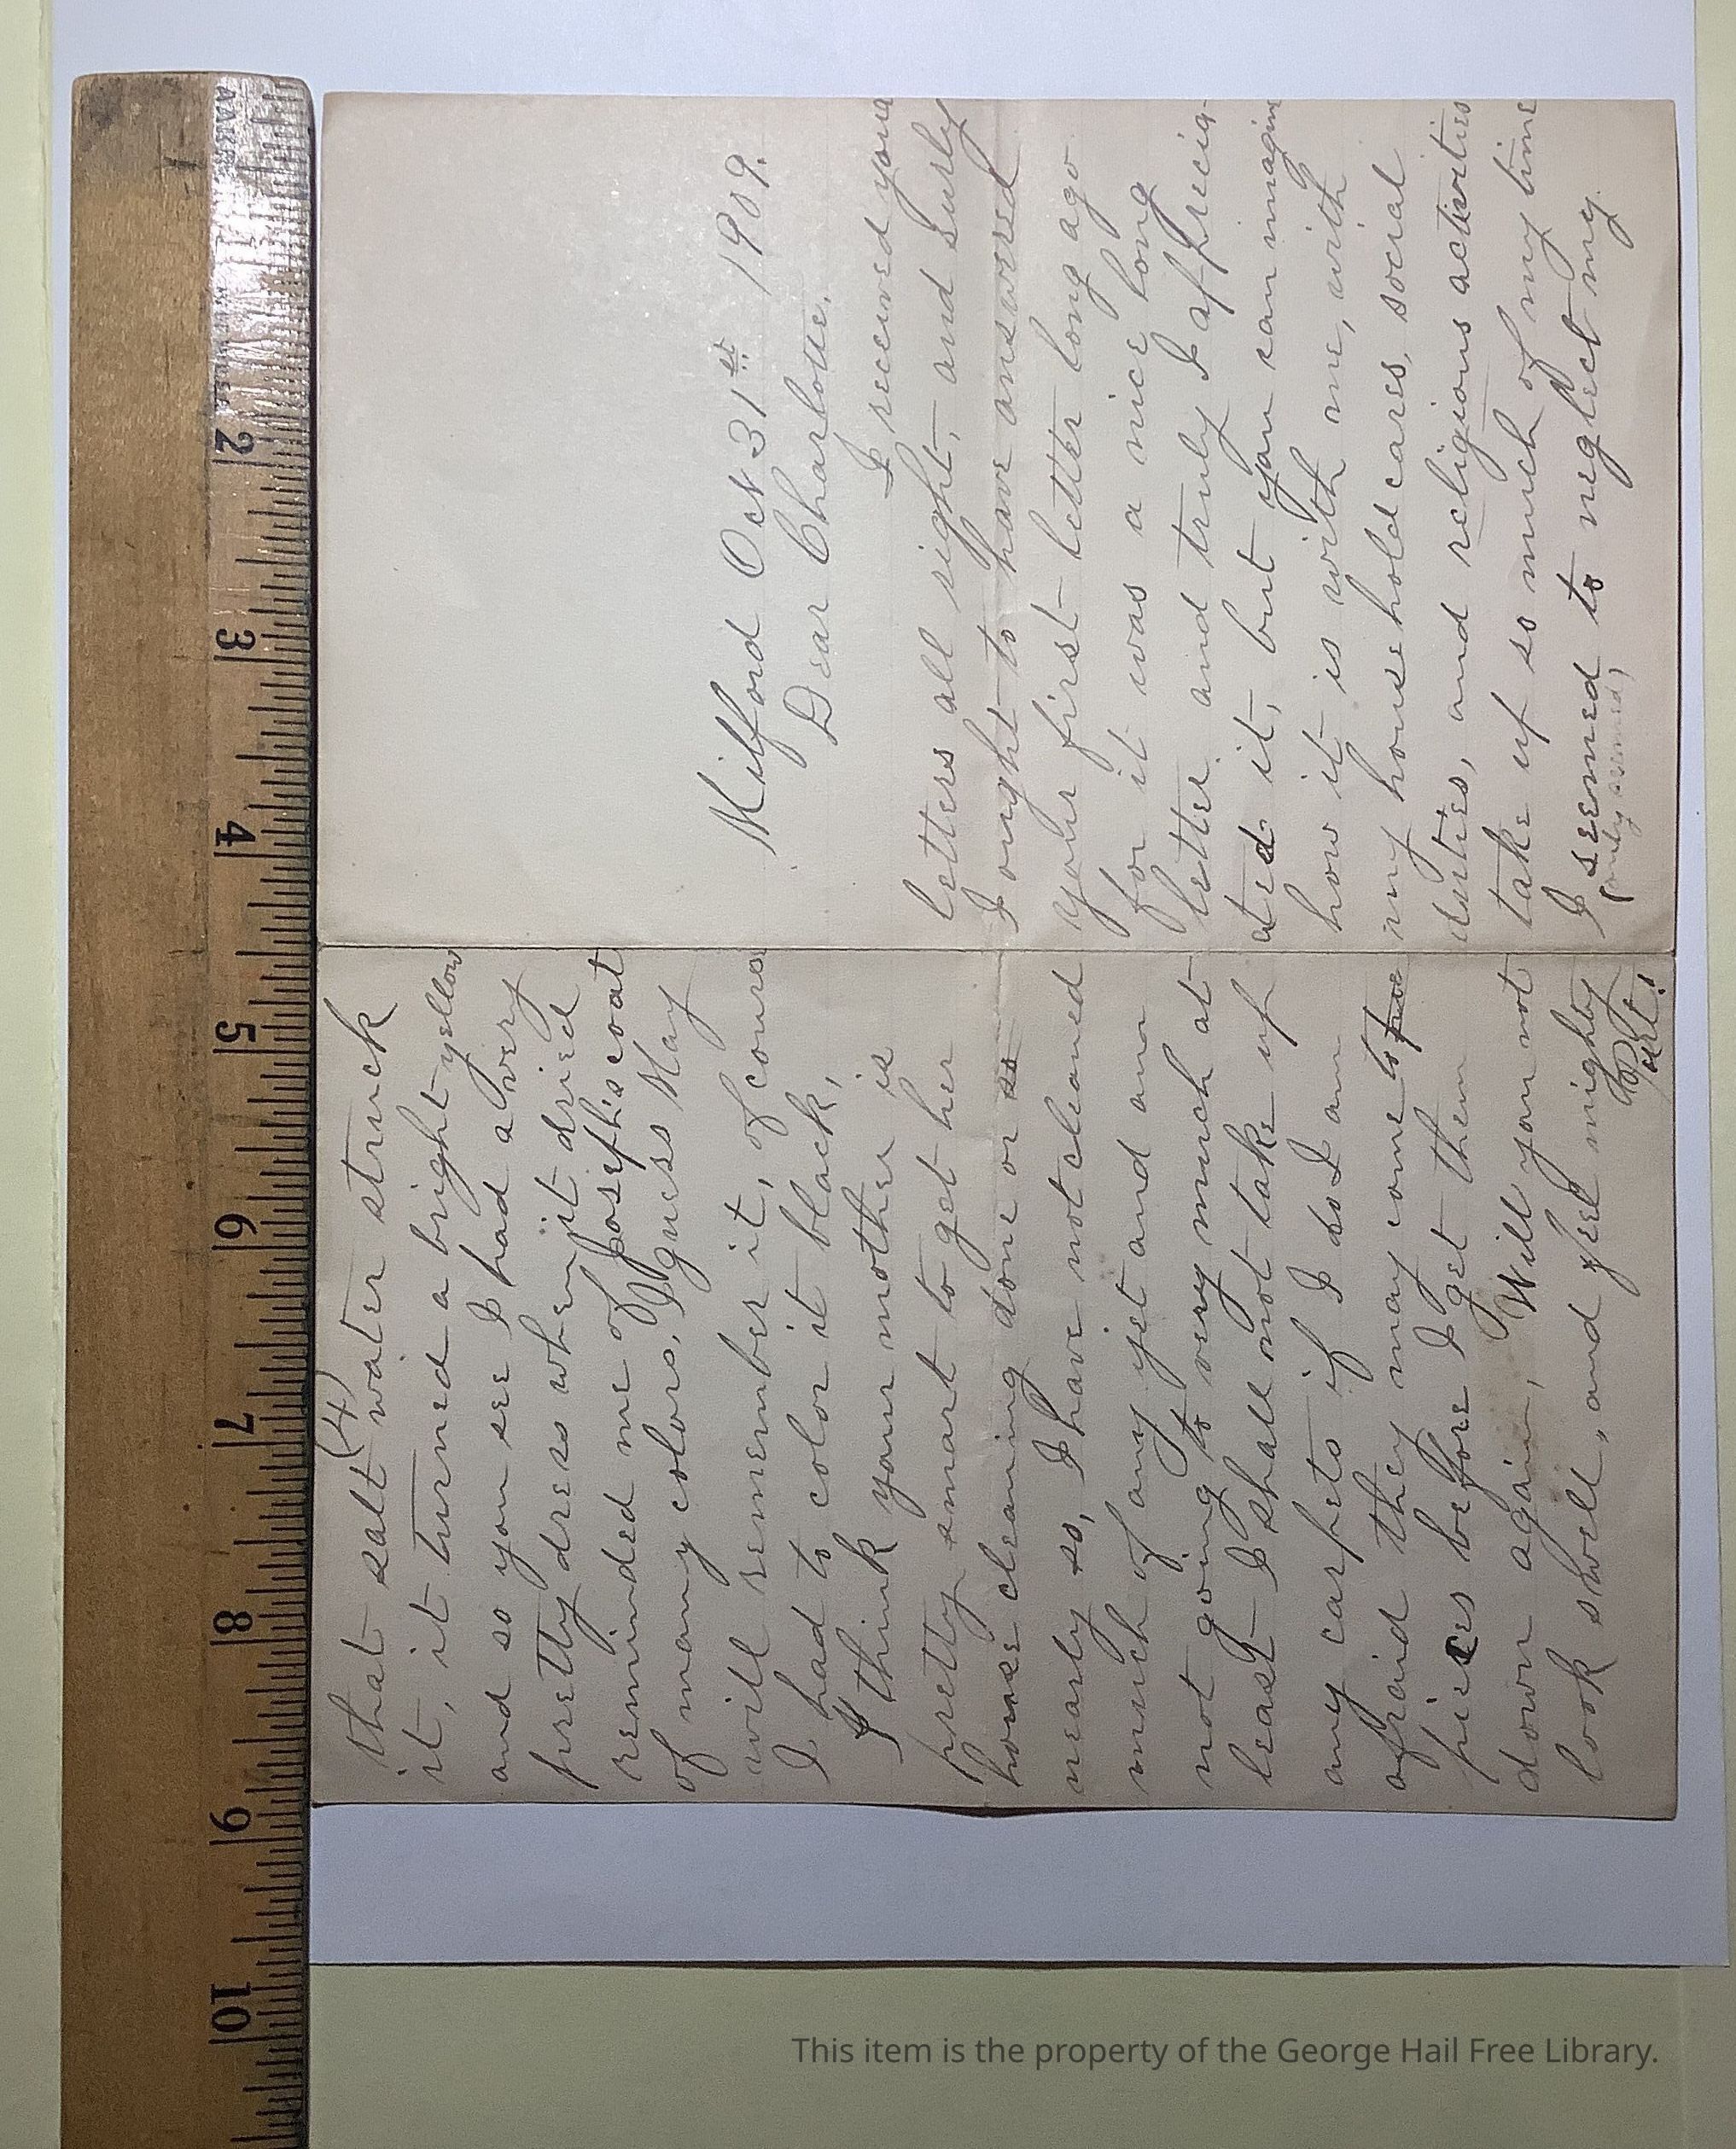 Milford Oct 31st 1909.
Dear Charlotte.
I received your
letters all right, and surly
I ought to have answered
your first letter long ago
for it was a nice long
letter and truly I apprecia-
ted it, but you can imagin
how it is with me, with
my household cares, social
duties, and religious activities
take up so much of my time
I seemed to neglect my
(only seemed)
(4)
that salt water struck
it, it turned a bright yellow
and so you see I had a very
pretty dress when it dried
reminded me of Joseph's coat
of many colors, I guess May
will remember it, of course
I had to color it black,
I think your mother is
pretty smart to get her
house cleaning done or so
nearly so, I have not cleaned
much of any yet and am
not going to very much at
least I shall not take up
any carpets if I do I am
afraid they may come to
pieces before I get them
down again, Will you not
look swell, and feel mighty
Pert!
2
3
4
5
6
7
8
9
10
This item is the property of the George Hail Free Library.